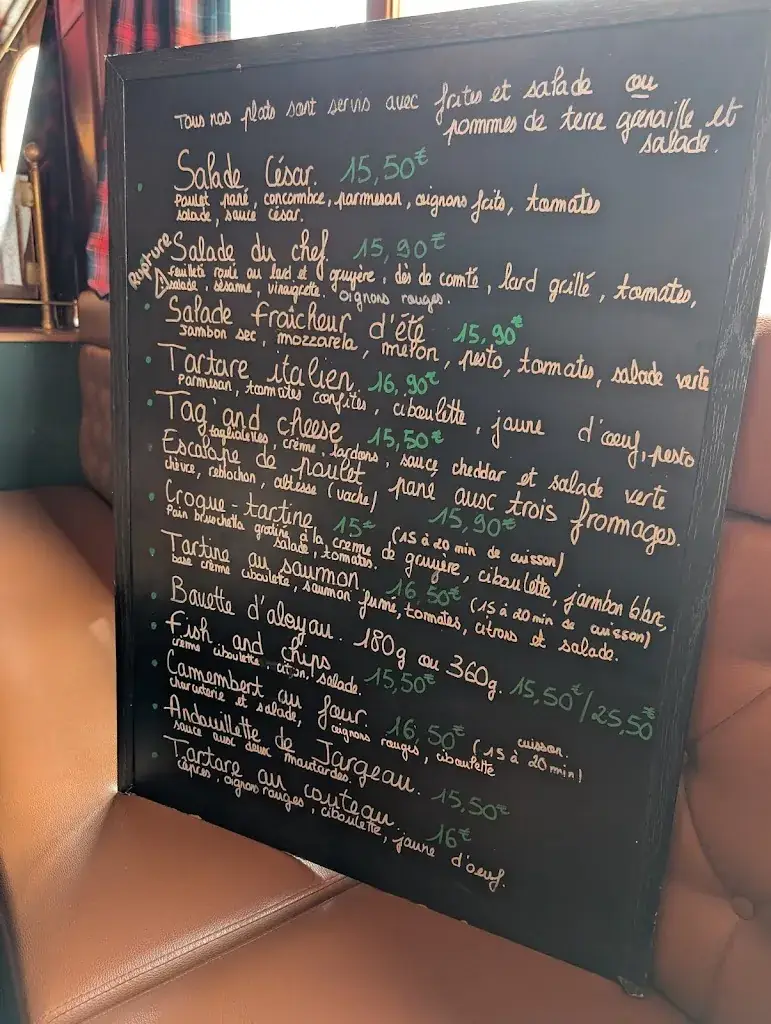 Tous nos plats sont servis avec frites et salade ou
pommes de terre grenaille et
salade.
Salade César. 15,50€
Poulet pané, concombre, parmesan, oignons frits, tomates
salade, sauce césar.
Rupture
Salade du chef. 15,90€
feuilleté roulé au lard et gruyère, dés de comté, lard grillé, tomates,
salade, sésame, vinaigrette. oignons rouges.
Salade fraîcheur d'été 15,90€
Jambon sec, mozzarela, melon, pesto, tomates, salade verte
Tartare italien. 16,90€
Parmesan, tomates confites, ciboulette, jaune d'oeuf, pesto
Tag'and cheese 15,50€
tagliatelles, crème, lardons, sauce cheddar et salade verte
Escalope de poulet pané aux trois fromages.
chèvre, reblochon, altesse (vache) 15,90€
Croque-tartine 15€ (15 à 20 min de cuisson)
Pain bruschetta gratiné à la creme de gruyère, ciboulette, jambon blanc,
salade, tomates.
Tartine au saumon 16,50€ (15 à 20 min de cuisson)
base crème ciboulette, saumon fumé, tomates, citrons et salade.
Bavette d'aloyau. 180g ou 360g. 15,50€/25,50€
Fish and chips 15,50€
crème ciboulette, citron, salade.
Camembert au four. 16,50€ (15 à 20 min) cuisson.
charcuterie et salade, oignons rouges, ciboulette
Andouillette de Jargeau. 15,50€
sauce aux deux moutardes.
Tartare au couteau 16€
câpres, oignons rouges, ciboulette, jaune d'oeuf.